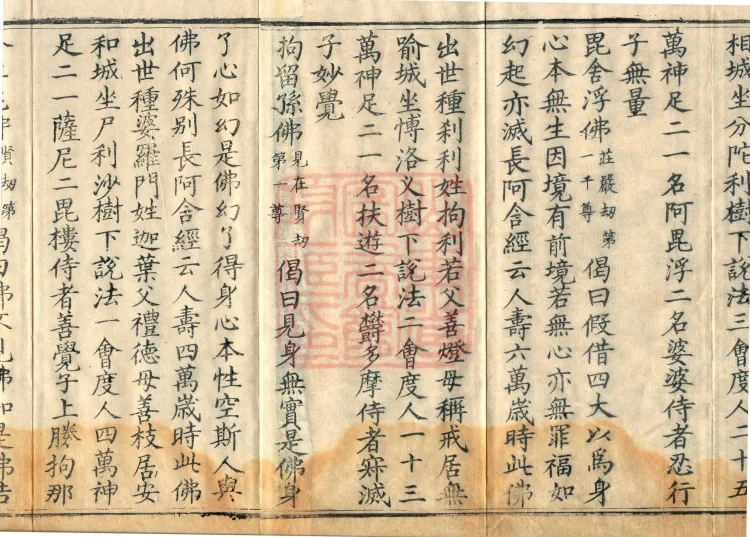 相城坐分陀利樹下說法三會度人二十五
萬神足二一名阿毘浮二名婆婆侍者忍行
子無量
毘舍浮佛莊嚴劫第一千尊偈曰假借四大以爲身
心本無生因境有前境若無心亦無罪福如
幻起亦滅長阿含經云人壽六萬歲時此佛
出世種刹利姓拘利若父善燈母稱戒居無
喻城坐博洛义樹下說法二會度人一十三
萬神足二一名扶遊二名欝多摩侍者寂滅
子妙覺
拘留孫佛見在賢劫第一尊偈曰見身無實是佛身
了心如幻是佛幻了得身心本性空斯人與
佛何殊別長阿含經云人壽四萬歲時此佛
出世種婆羅門姓迦葉父禮德母善枝居安
和城坐尸利沙樹下說法一會度人四萬神
足二一薩尼二毘樓侍者善覺子上勝拘那
賢劫第偈曰佛不見佛知是佛若